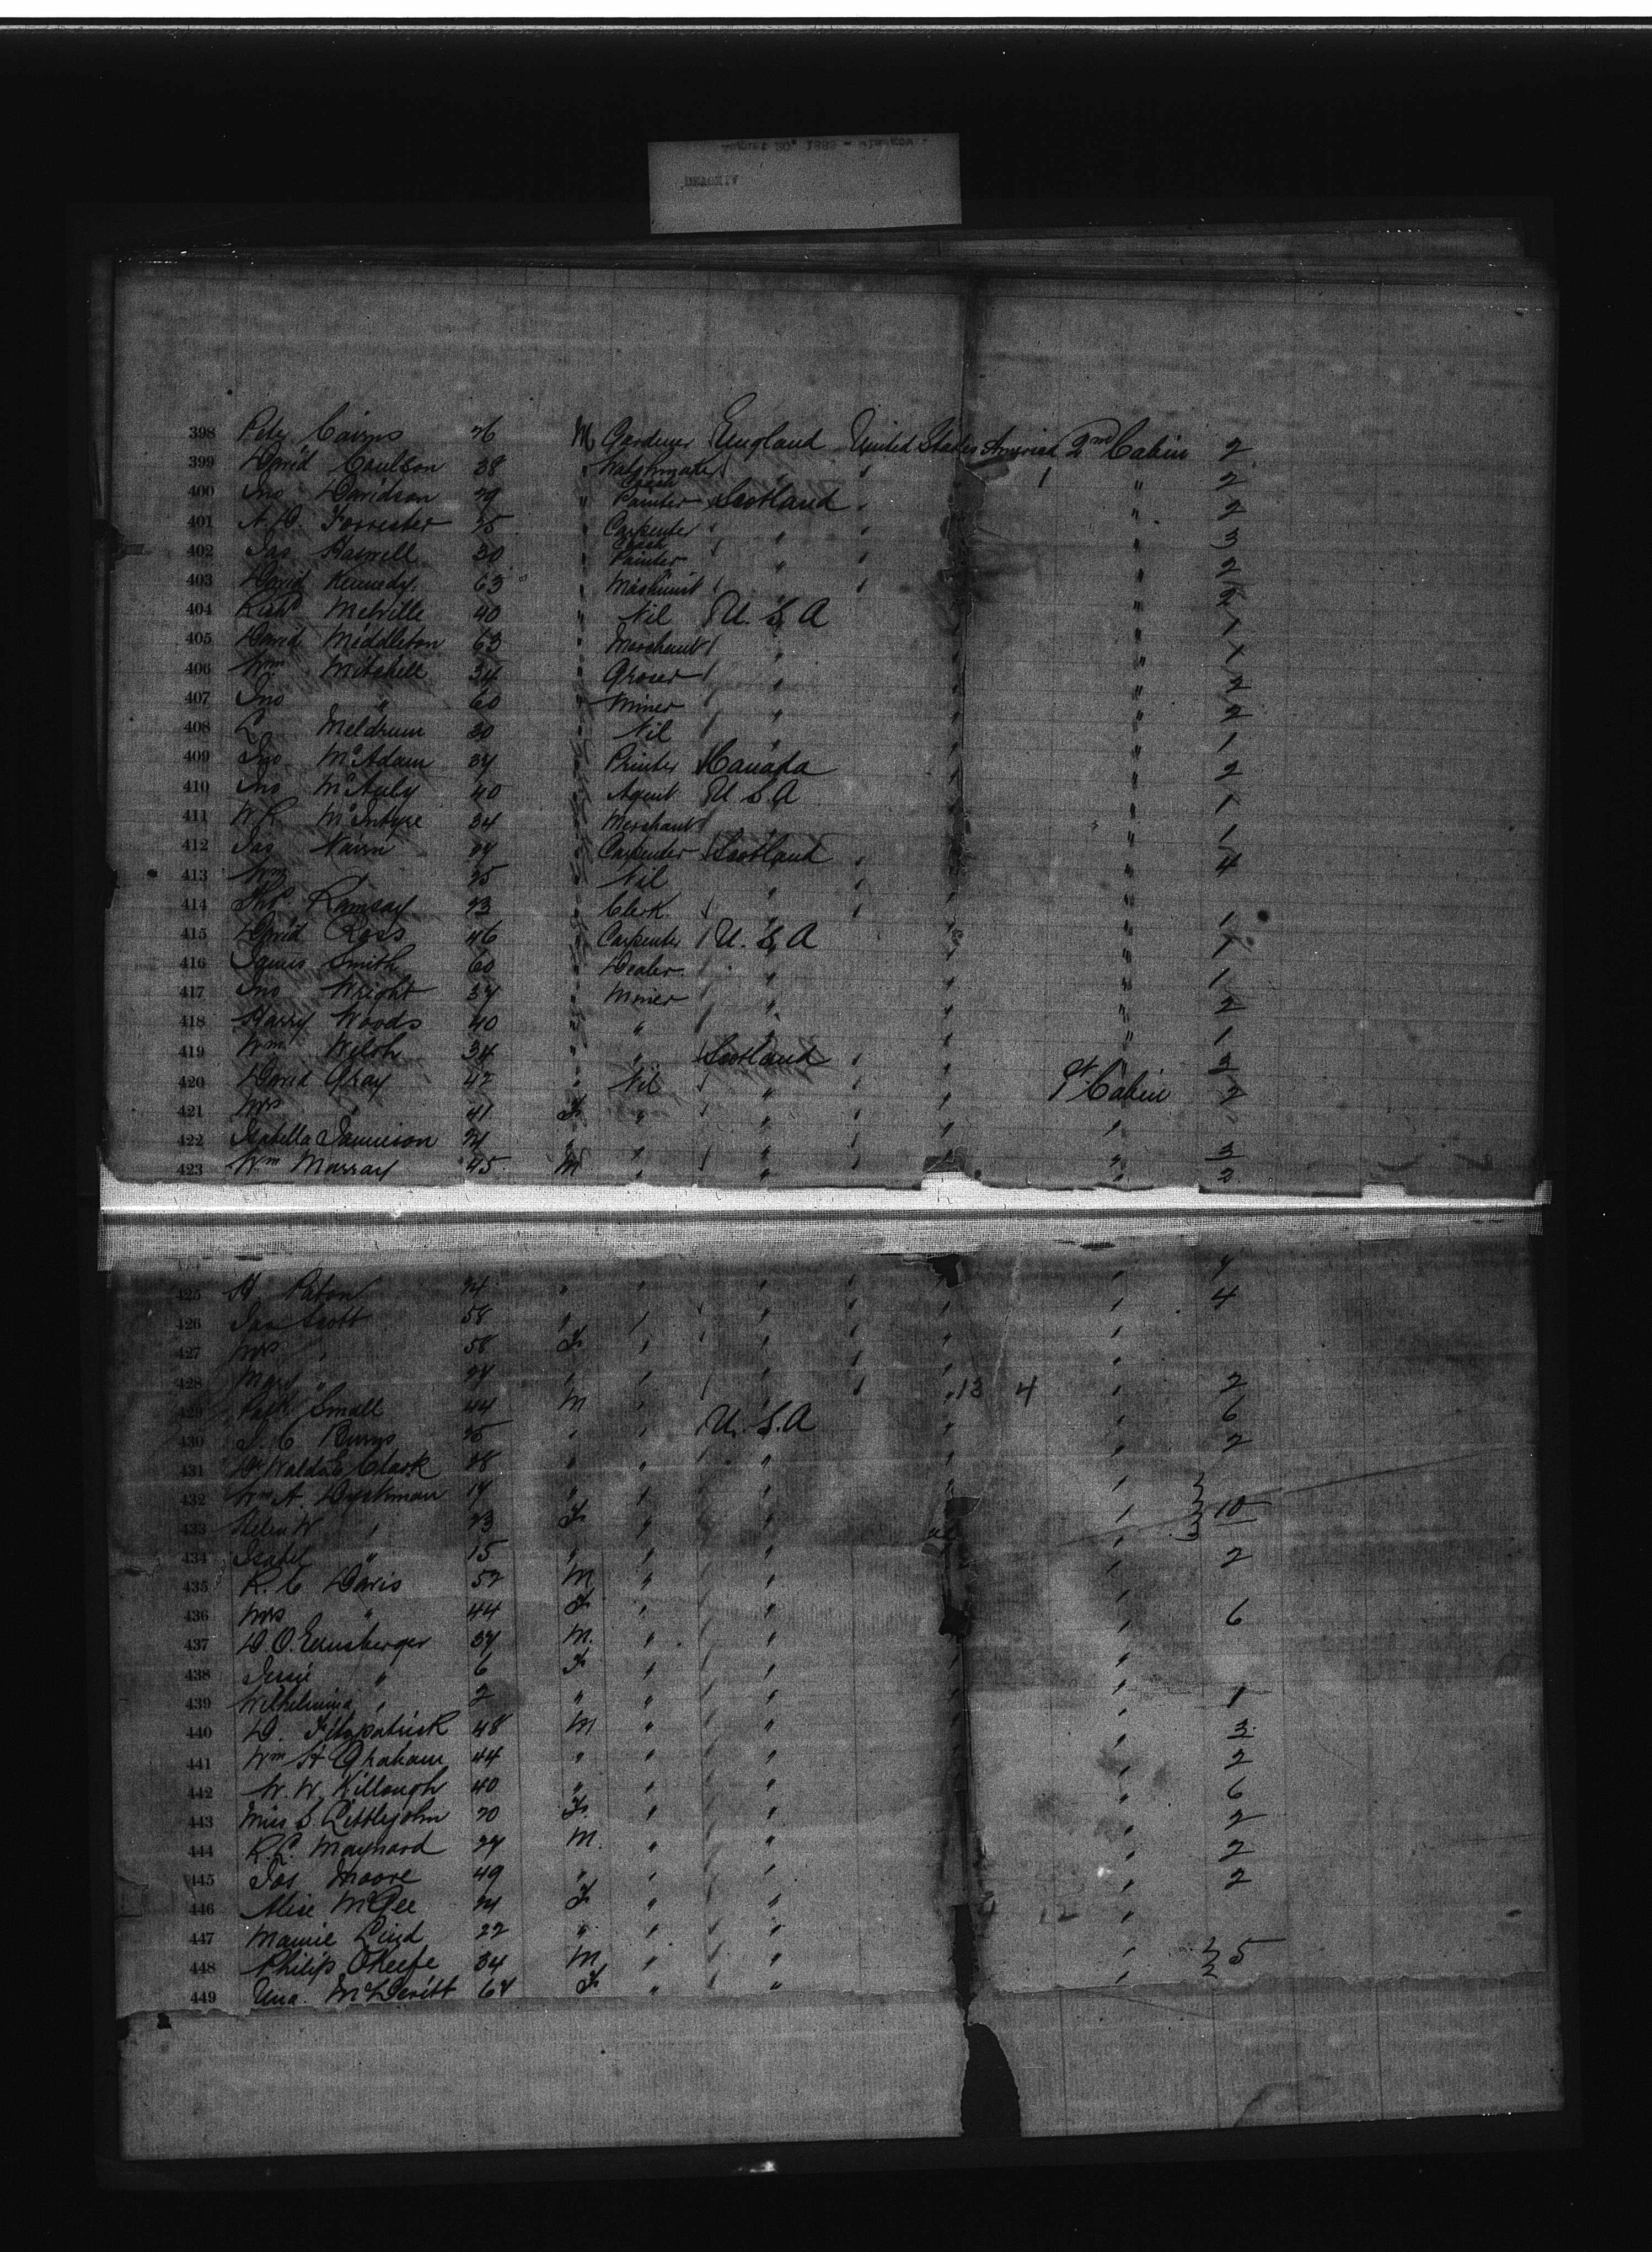 August 20, 1889 - Glasgow
DEVONIA
398 Peter Cairns 26 M Gardener England United States America 2nd Cabin 2
399 David Coulson 38 " Watchmaker " 1 " 2
400 Jno Davidson 29 " Coach Painter Scotland " " 2
401 A. D. Forrester 25 " Carpenter " " 3
402 Jas Haswell 30 " Coach Painter " " 2
403 David Kennedy 63 " Machinist " " 2
404 Richd Melville 40 " Nil U. S. A " 1
405 David Middleton 63 " Merchant " " 1
406 Wm Mitchell 34 " Grocer " " 2
407 Jno " 60 " Miner " " 2
408 L Meldrum 30 " Nil " " 1
409 Jno McAdam 37 " Printer Canada " 2
410 Jno McAuly 40 " Agent U. S. A " 1
411 W. R. McIntyre 34 " Merchant " " 1
412 Jas Nairn " Carpenter Scotland " 4
413 Wm " 25 " Nil " "
414 Thos Ramsay 23 " Clerk " " 1
415 David Ross 46 " Carpenter U. S. A " 1
416 James Smith 60 " Dealer " " 1
417 Jno Wright 37 " Miner " " 2
418 Harry Woods 40 " " " " 1
419 Wm Welsh 34 " " Scotland " 3
420 David Gray 42 " Nil " 1st Cabin 2
421 Mrs " 41 F " " "
422 Isabella Jamieson 21 " " " " 3
423 Wm Murray 45 M " " " 2
425 H. Paton 24 " " " " 4
426 Jas Scott 58 " " " "
427 Mrs " 58 F " " "
428 Mary " 27 " " " 13 4 " 2
429 Small 44 M " " " 6
430 J. C. Burns 25 " " U. S. A " 2
431 Clark 28 " " " "
432 Wm A. Dyckman 17 " " " " 10
433 Helen W " 23 F " " "
434 Isabel " 15 " " " " 2
435 R. C. Davis 52 M " " "
436 Mrs " 44 F " " " 6
437 D. O. Eunsberger 37 M " " "
438 Jessie " 6 F " " "
439 Wilhelmina " 2 " " " " 1
440 D. Fitzpatrick 48 M " " " 3
441 Wm H Graham 44 " " " " 2
442 W. W. Killough 40 " " " " 6
443 Miss S. Littlejohn 20 F " " " 2
444 R. L. Maynard 27 M " " " 2
445 Jas Moore 49 " " " " 2
446 Alice McGee 21 F " " 12 "
447 Mamie Lind 22 " " "
448 Philip OKeefe 34 M " " " 5
449 Una McDevitt 64 F " " "